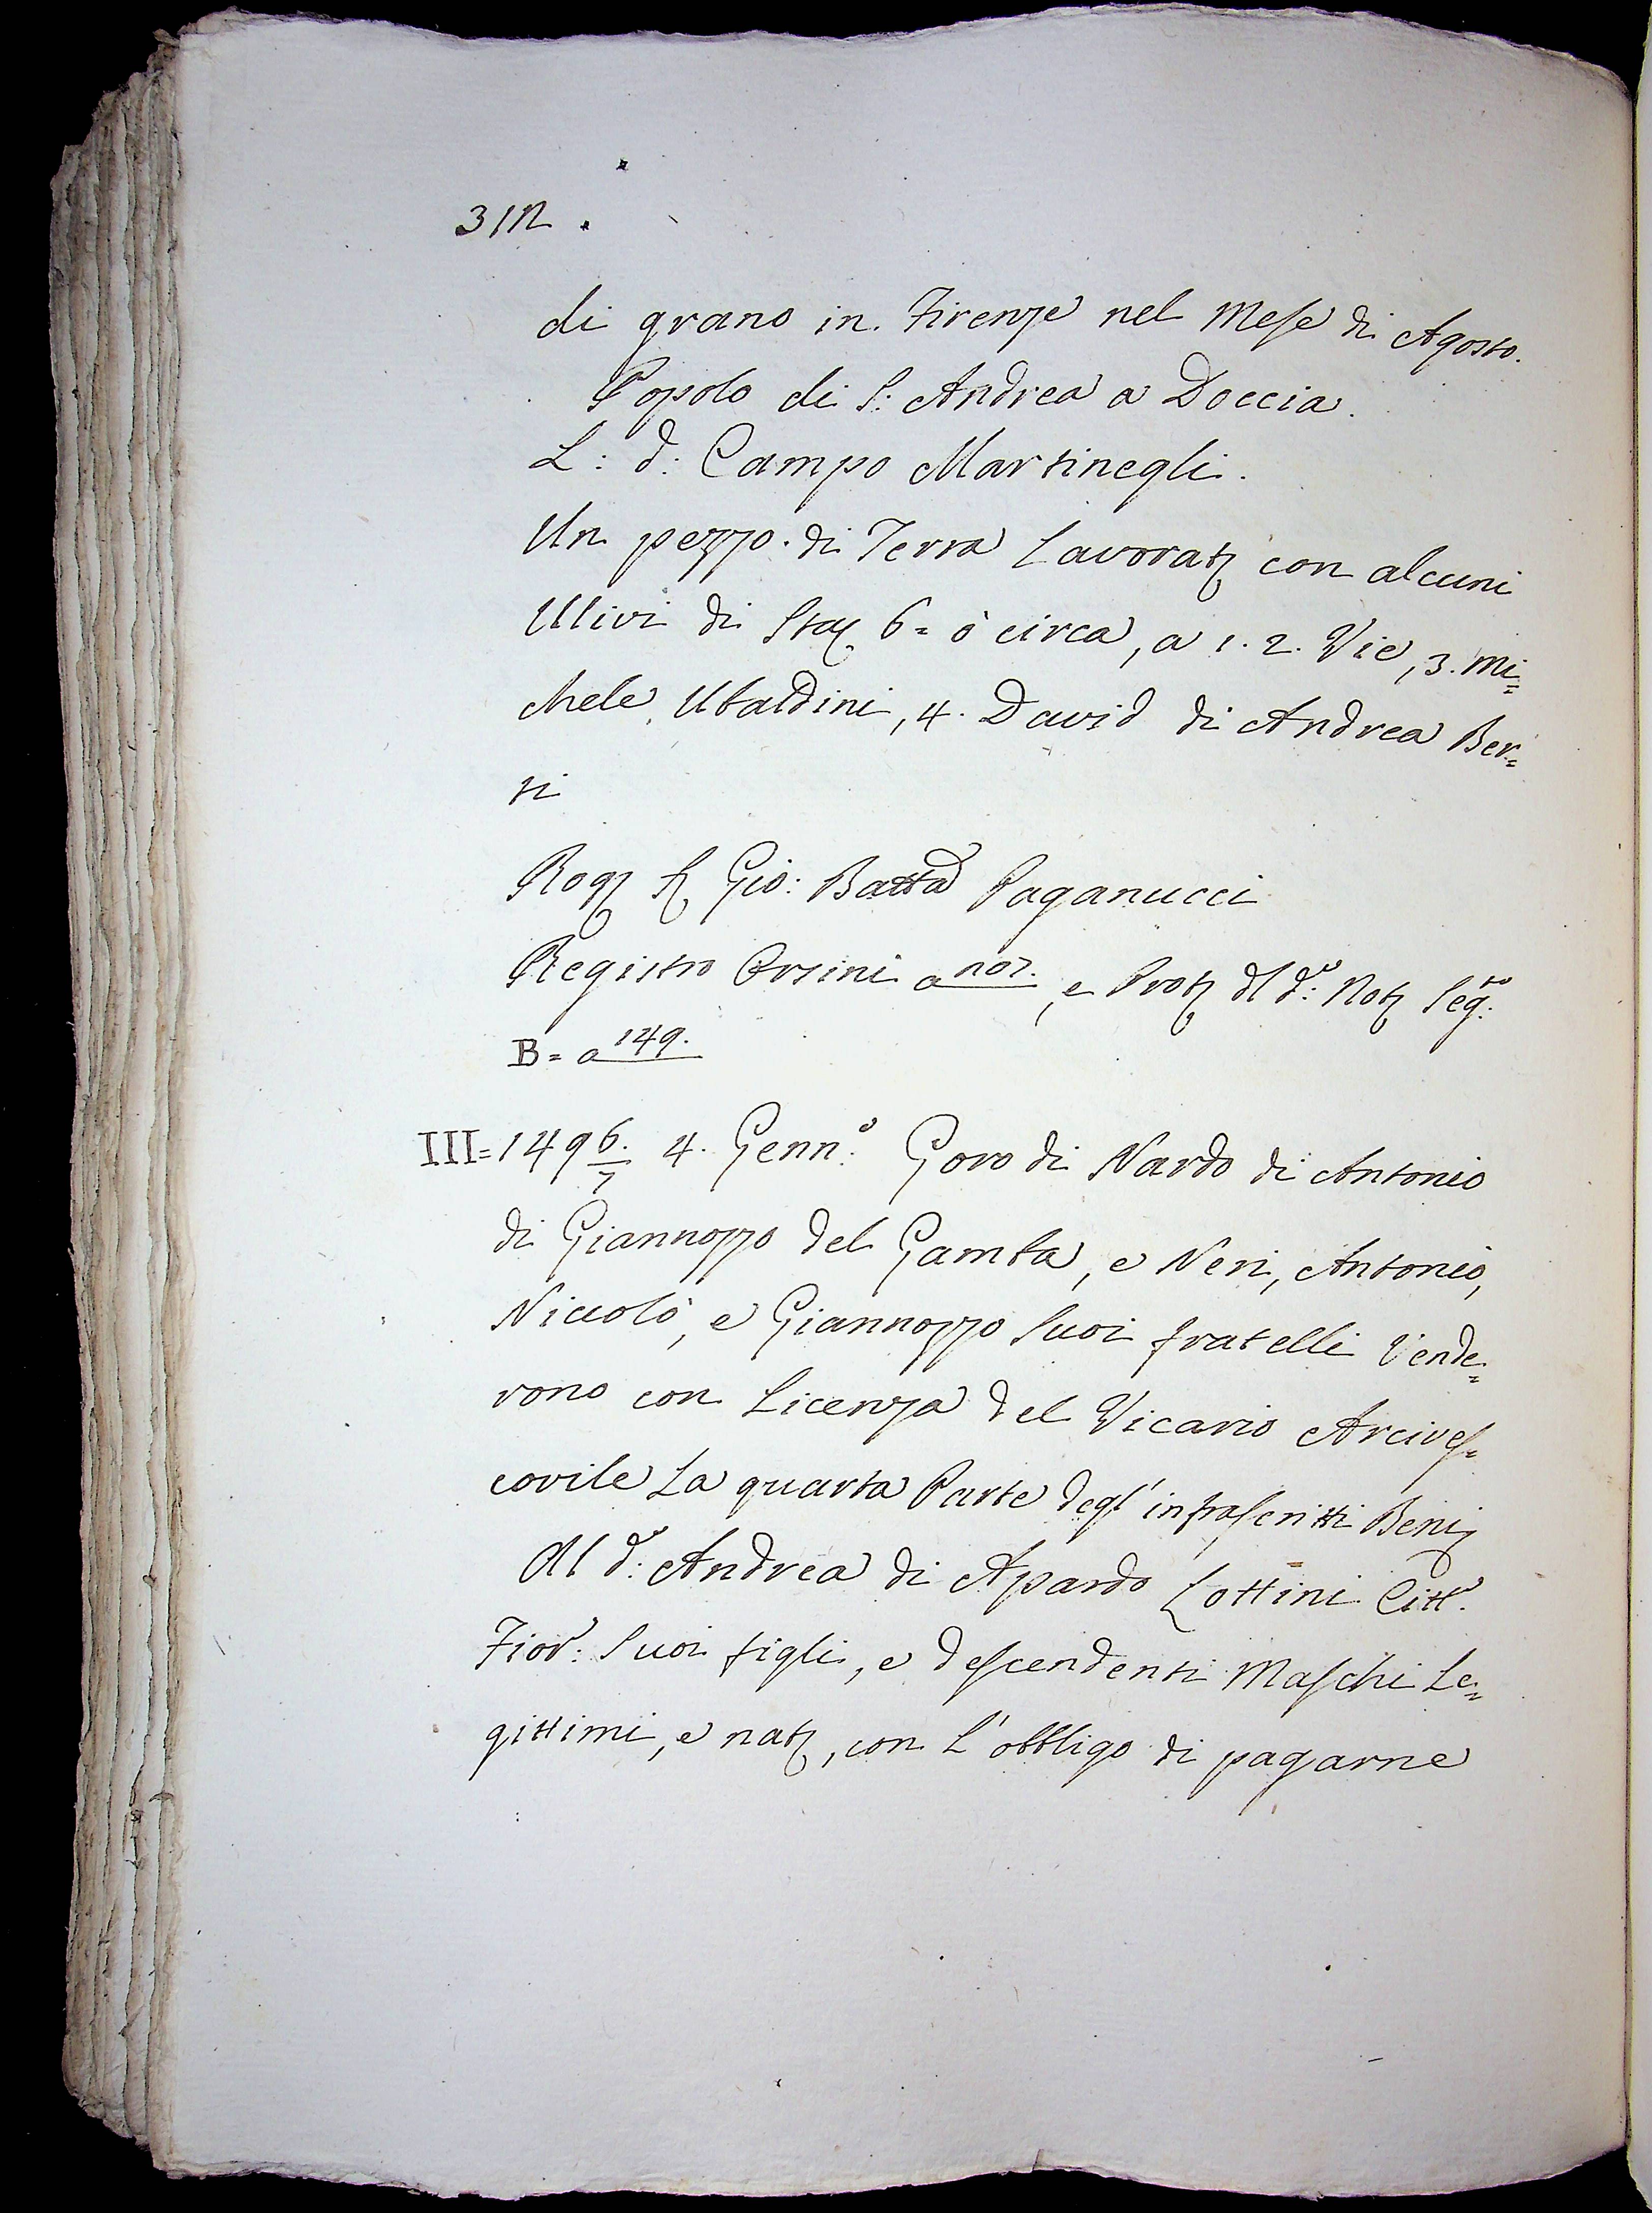 312.
di grano in Firenze nel Mese di Agosto.
Popolo di S: Andrea a Doccia.
L: d: Campo Martinegli.
Un pezzo di Terra Lavorat con alcuni
Ulivi di Sta 6= ò circa, a 1. 2. Vie, 3. Mi=
chele Ubaldini, 4. David di Andrea Ber=
ti
Rog Gio: Batta Paganucci
Registro Orsini a 107. e Prot dl do: Not Segto:
B= a 149.
III= 1496./7 4. Genno: Goro di Nardo di Antonio
di Giannozzo del Gamba, e Neri, Antonio,
Niccolò, e Giannozzo Suoi fratelli Vende=
rono con Licenza del Vicario Arcives=
covile La quarta Parte degl' infrascritti Beni
Al do: Andrea di Apardo Lottini Citto.
Fioro: Suoi figli, e descendenti Maschi Le=
gittimi, e nat, con L'obbligo di pagarne